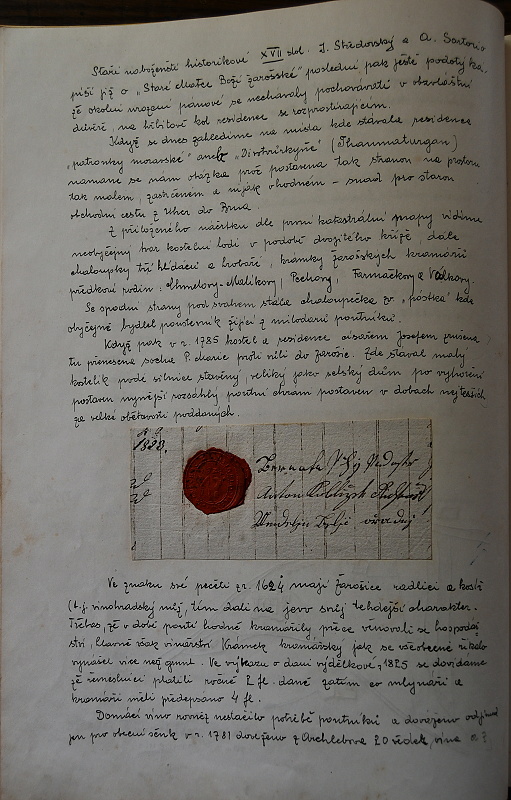 Staří náboženští historikové XVII stol. J. Středovský a A. Sartorio
píší již o „Staré Matce Boží žarošské" poslední pak ještě podotýka,
že okolní urození pánové se nechávaly pochovávati v obzvláštní
důvěře, na hřbitově kol residence se rozprostírajícím.
Když se dnes zahledíme na místa kde stávala residence
„patronky moravské" aneb „Divotvůrkyně" (Thaumaturgan)
namane se nám otázka proč postavena tak stranou na prostoru
tak malém, zastrčeném a nijak vhodném – snad pro starou
obchodní cestu z Uher do Brna.
Z přiloženého náčrtku dle první katastrální mapy vidíme
neobyčejný tvar kostelní lodi v podobě dvojitého kříže, dále
chaloupky tří hlídačů a hrobaře, krámky žarošských kramářů
předkové rodin: Chmelovy-Malíkovy, Pechovy, Farmačkovy a Valkovy.
Se spodní strany pod svahem stála chaloupečka zv. „póstka" kde
obyčejně bydlel poustevník žijící z milodarů poutníků.
Když pak v r. 1785 kostel a residence císařem Josefem zrušena,
tu přenesena socha P. Marie proti vůli do Žarošic. Zde stával malý
kostelík podé silnice stavěný, veliký jako selský dům pro vyhoření
postaven nynější rozsáhlý poutní chrám postaven v dobách nejtěžších
za velké obětavosti poddaných.
1828.
Anton
Ve znaku své pečeti z r. 1624 mají Žarošice radlici a kosíř
(t.j. vinohradský nůj, tím dali na jevo svůj tehdejší charakter.
Třebas, že v době poutí hodně kramářily, přece věnovali se hospodář-
ství, hlavně však vinařství. Krámek kramářský jak se všeobecně říkalo
vynášel více než grunt. Ve výkazu o dani výdělkové z 1825 se dovídáme
že řemeslníci platili ročně 2 fl. daně zatím co mlynáři a
kramáři měli předepsáno 4 fl.
Domácí víno rovněž nestačilo potřebě poutníků a dováženo odjinud
jen pro obecní šenk v r. 1781 dovezeno z Archlebova 20 věder, vína a 3